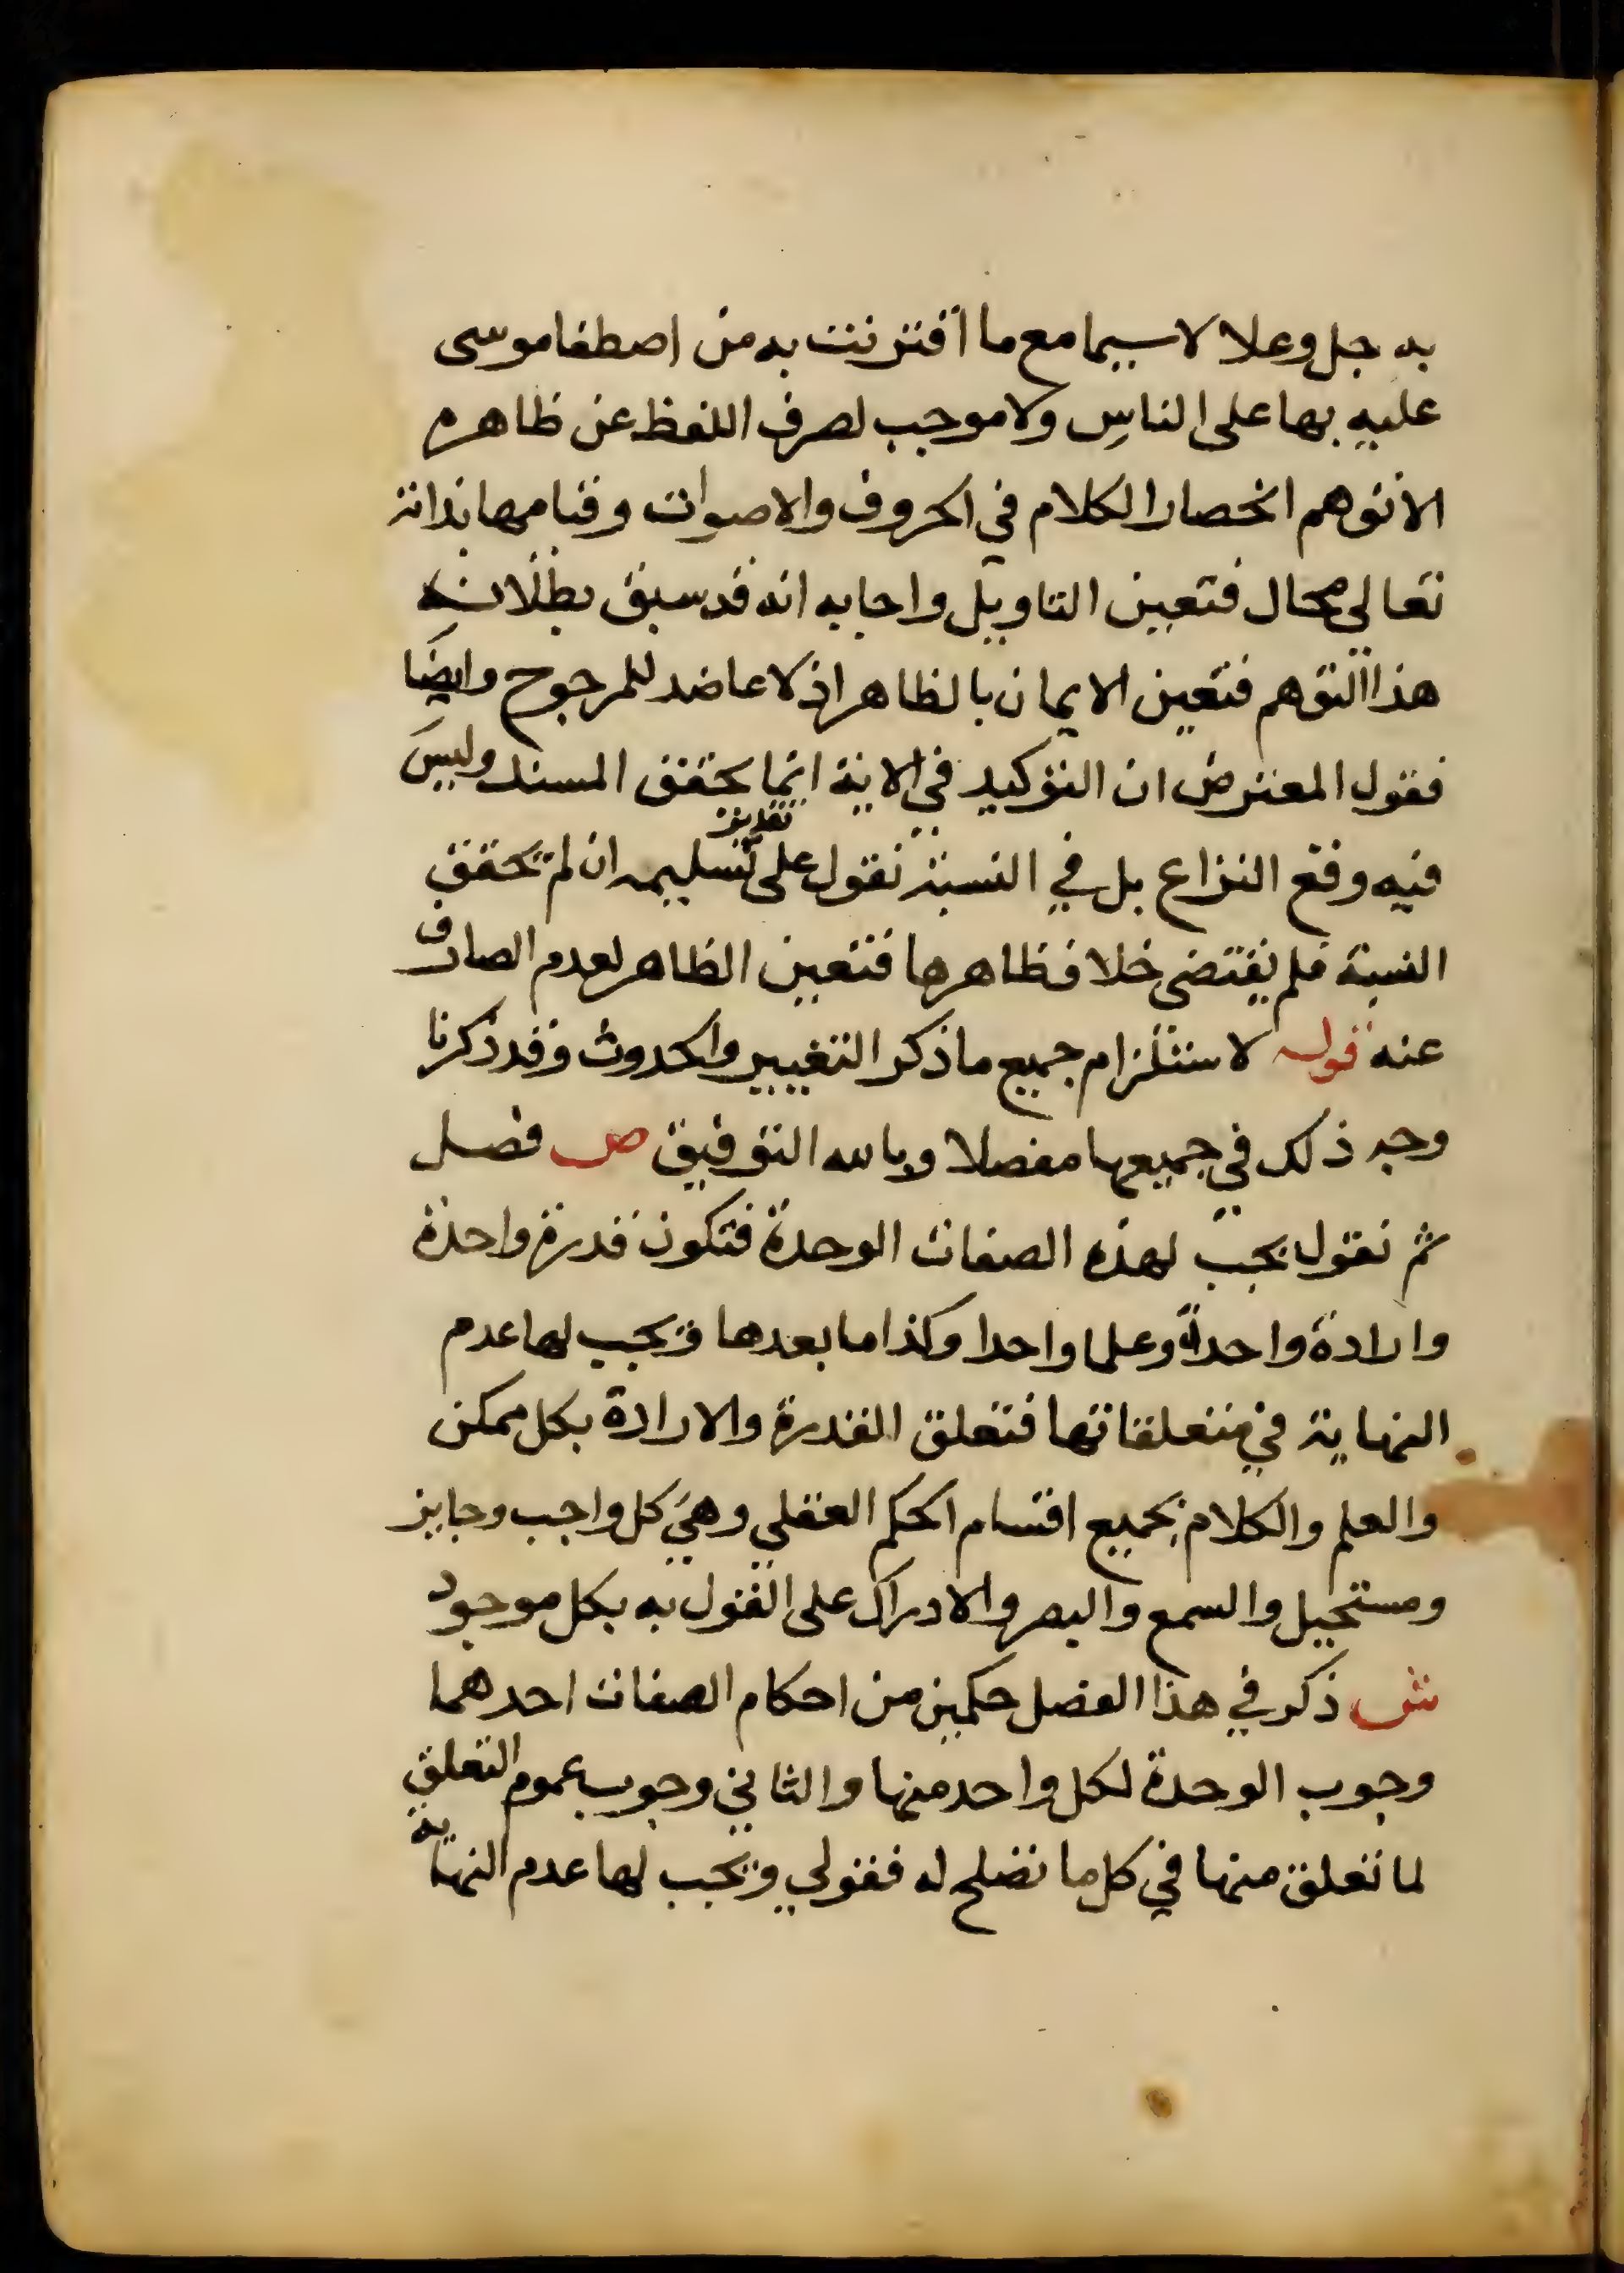 به جل وعلا لاسيما مع ما اقترنت به من اصطفا موسى
عليه بها على الناس ولا موجب لصرف اللفظ عن ظاهره
الا توهم انحصار الكلام في الحروف والاصوات وقيامها بذاته
تعالي محال فتعين التاويل واجابه انه قد سبق بطلان
هذا التوهم فتعين الايمان بالظاهر اذ لا عاضد للمرجوح وايضا
فقول المعترض ان التوكيد في الاية انما يحقق المسند وليس
فيه وقع النزاع بل في النسبة نقول على تقدير تسليمه ان لم تحقق
النسبة فلم يقتضى خلاف ظاهرها فتعين الظاهر لعدم الصارف
عنه قوله لاستلزام جميع ما ذكر التغيير والحدوث وقد ذكرنا
وجه ذلك في جميعها مفصلا وبالله التوفيق ص فصل
ثم نقول يجب لهذه الصفات الوحدة فتكون قدرة واحدة
وارادة واحدة وعلما واحدا وكذا ما بعدها ويجب لها عدم
النهاية في متعلقاتها فتعلق القدرة والارادة بكل ممكن
والعلم والكلام بجميع اقسام الحكم العقلي وهي كل واجب وجايز
ومستحيل والسمع والبصر والادراك على القول به بكل موجود
ش ذكر في هذا الفصل حكمين من احكام الصفات احدهما
وجوب الوحدة لكل واحد منها والثاني وجوب عموم التعلق
لما تعلق منها في كل ما تصلح له فقولي ويجب لها عدم النهاية